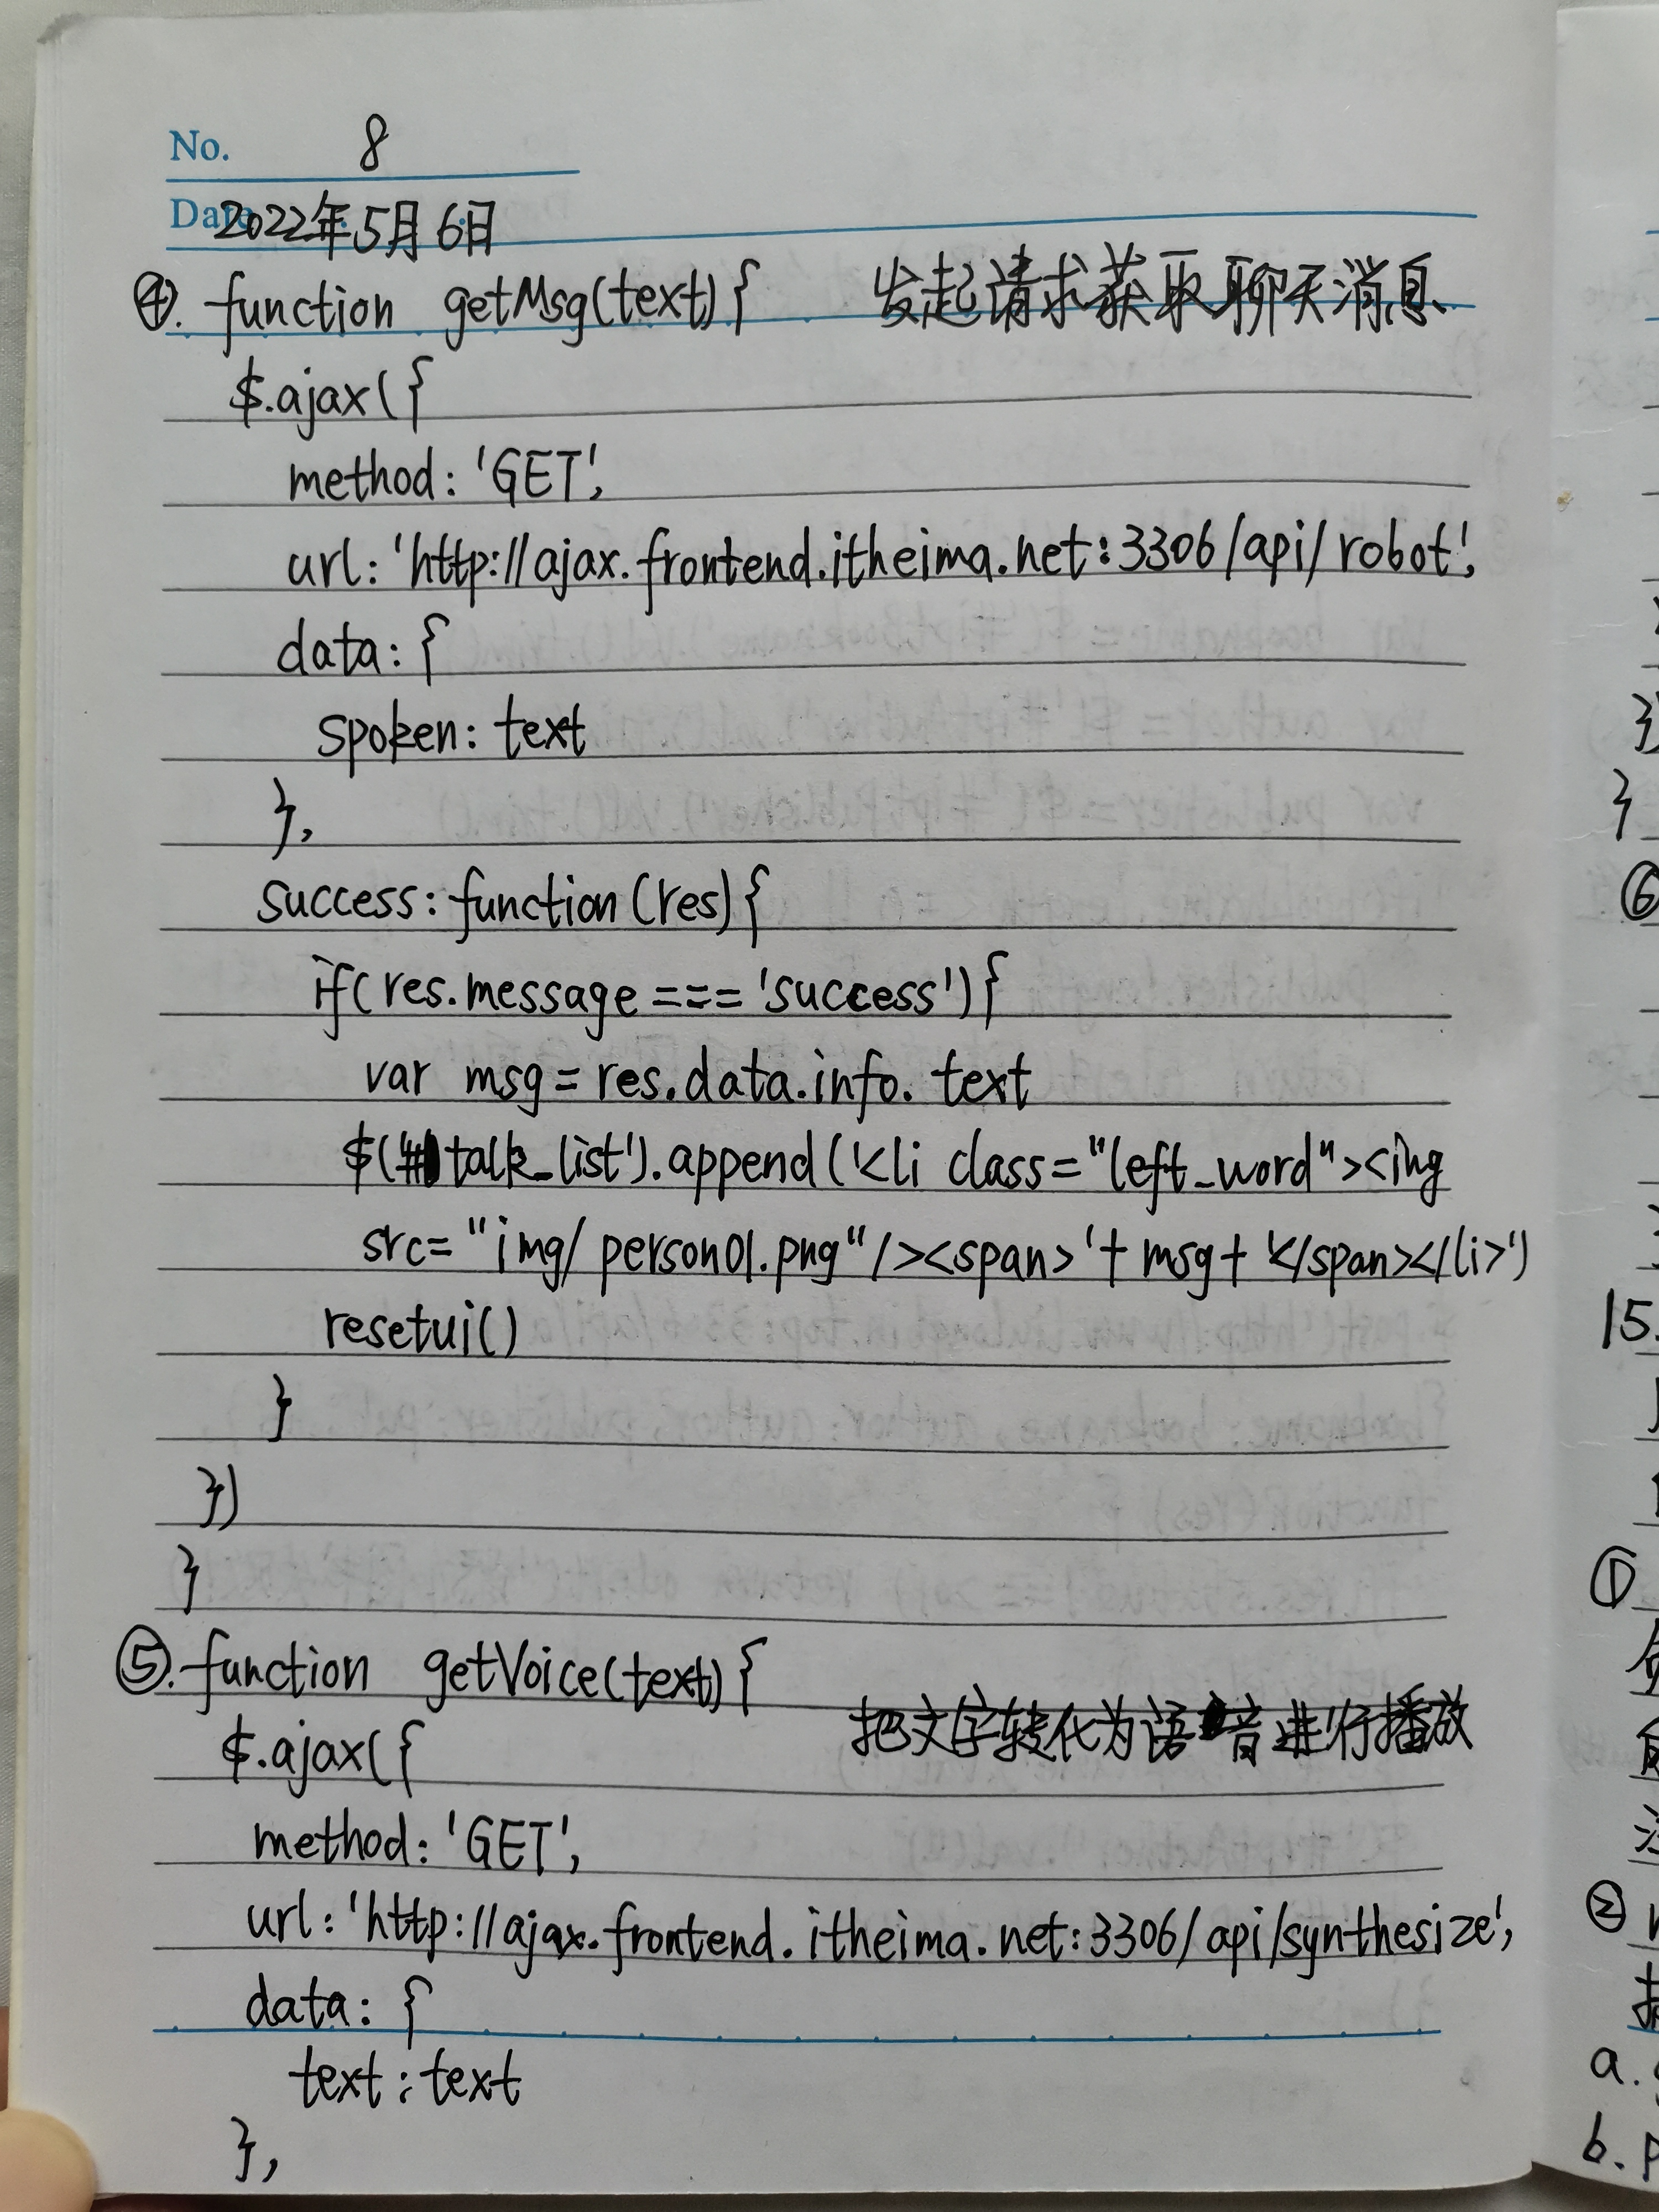 No. 8
Date 2022年5月6日
④. function getMsg(text){ 发起请求获取聊天消息
$.ajax({
method: 'GET',
url: 'http://ajax.frontend.itheima.net:3306/api/robot',
data: {
spoken: text
},
success: function(res){
if(res.message === 'success'){
var msg = res.data.info.text
$('#talk_list').append('<li class="left_word"><img
src="img/person01.png"/><span>'+ msg + '</span></li>')
resetui()
}
})
}
⑤. function getVoice(text){
$.ajax({ 把文字转化为语音进行播放
method: 'GET',
url: 'http://ajax.frontend.itheima.net:3306/api/synthesize',
data: {
text: text
},
}
}
⑥
15.
①
②
a.
b.